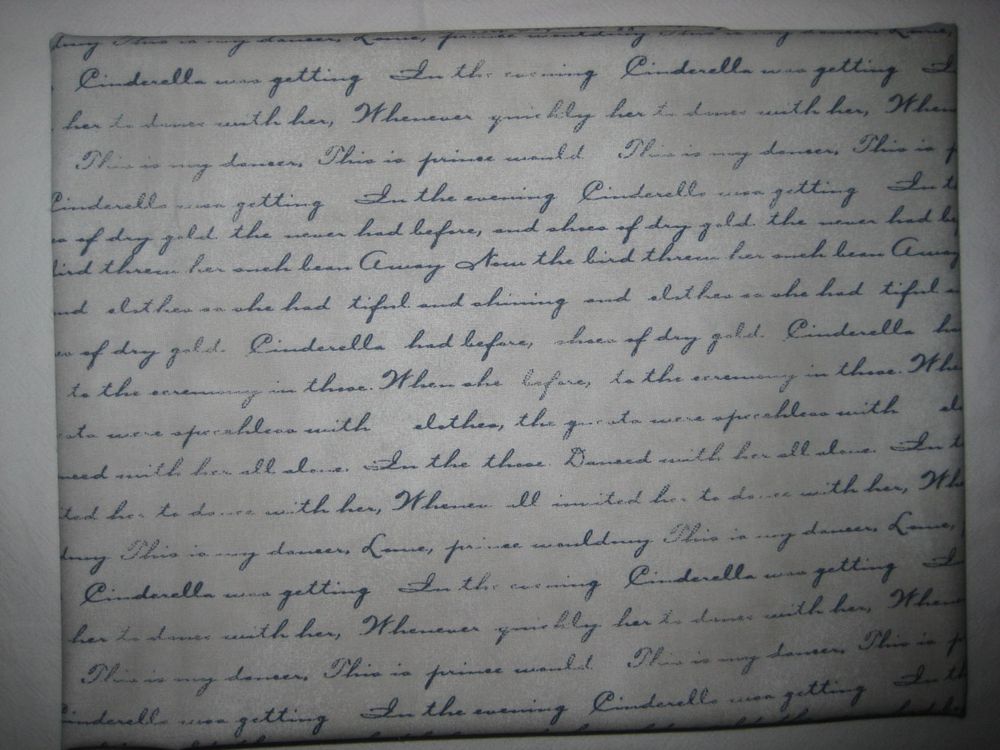 dmy This is my dancer, Lame, prince wouldmy This is my dancer, Lame,
Cinderella was getting In the evening Cinderella was getting In
her to dance with her, Whenever quickly her to dance with her, When
This is my dancer, This is prince would This is my dancer, This is p
Cinderella was getting In the evening Cinderella was getting In t
es of dry gold. the never had before, and shoes of dry gold. the never had be
bird threw her such bean Away Now the bird threw her such bean Away
and clothes so she had tiful and shining and clothes so she had tiful a
es of dry gold. Cinderella had before, shoes of dry gold. Cinderella ha
to the ceremony in those. When she before, to the ceremony in those. Whe
ests were speechless with clothes, the guests were speechless with clo
nced with her all alone. In the those Danced with her all alone. In t
ited her to dance with her, Whenever all invited her to dance with her, Wh
dmy This is my dancer, Lame, prince wouldmy This is my dancer, Lame,
Cinderella was getting In the evening Cinderella was getting I
her to dance with her, Whenever quickly her to dance with her, When
This is my dancer, This is prince would This is my dancer, This is p
Cinderella was getting In the evening Cinderella was getting In th